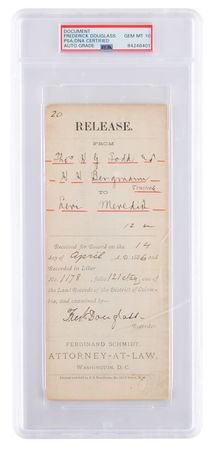 DOCUMENT
FREDERICK DOUGLASS
PSA/DNA CERTIFIED
AUTO GRADE
GEM MT 10
84248401
PSA
20
RELEASE.
FROM
Thos H G Todd &
N H Bergmann
Trustees
TO
Levi Meredid
12 m
Received for Record on the 14
day of April A.D. 1886 and
Recorded in Liber
No. 1178, folio 121 et seq., one of
the Land Records of the District of Colum-
bia, and examined by
Fredk Douglass
Recorder.
FERDINAND SCHMIDT,
ATTORNEY-AT-LAW,
WASHINGTON, D. C.